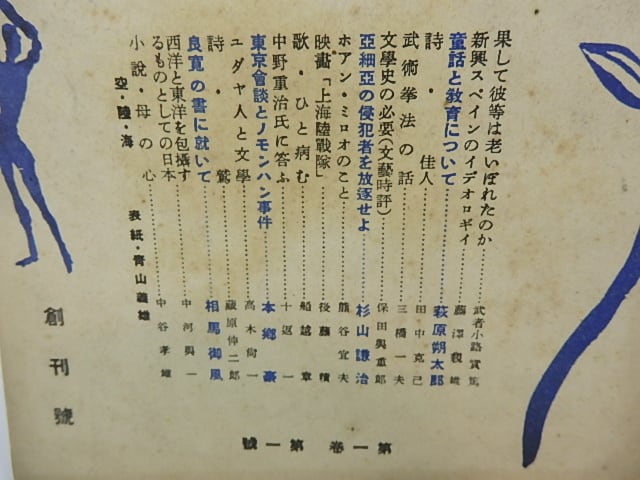 果して彼等は老いぼれたのか……武者小路實篤
新興スペインのイデオロギイ……藤澤親雄
童話と教育について……萩原朔太郎
詩・佳人……田中克己
武術拳法の話……三橋一夫
文學史の必要(文藝時評)……保田與重郎
亞細亞の侵犯者を放逐せよ……杉山謙治
ホアン・ミロオのこと……熊谷宣夫
映畫「上海陸戰隊」……後藤積
歌・ひと病む……船越章
中野重治氏に答ふ……十返一
東京會談とノモンハン事件……本鄕豪
ユダヤ人と文學……高木尙一
詩・鷲……蔵原伸二郎
良寬の書に就いて……相馬御風
西洋と東洋を包攝す
るものとしての日本……中河與一
小說・母の心……中谷孝雄
空・陸・海
表紙・靑山義雄
創刊號
第一卷 第一號